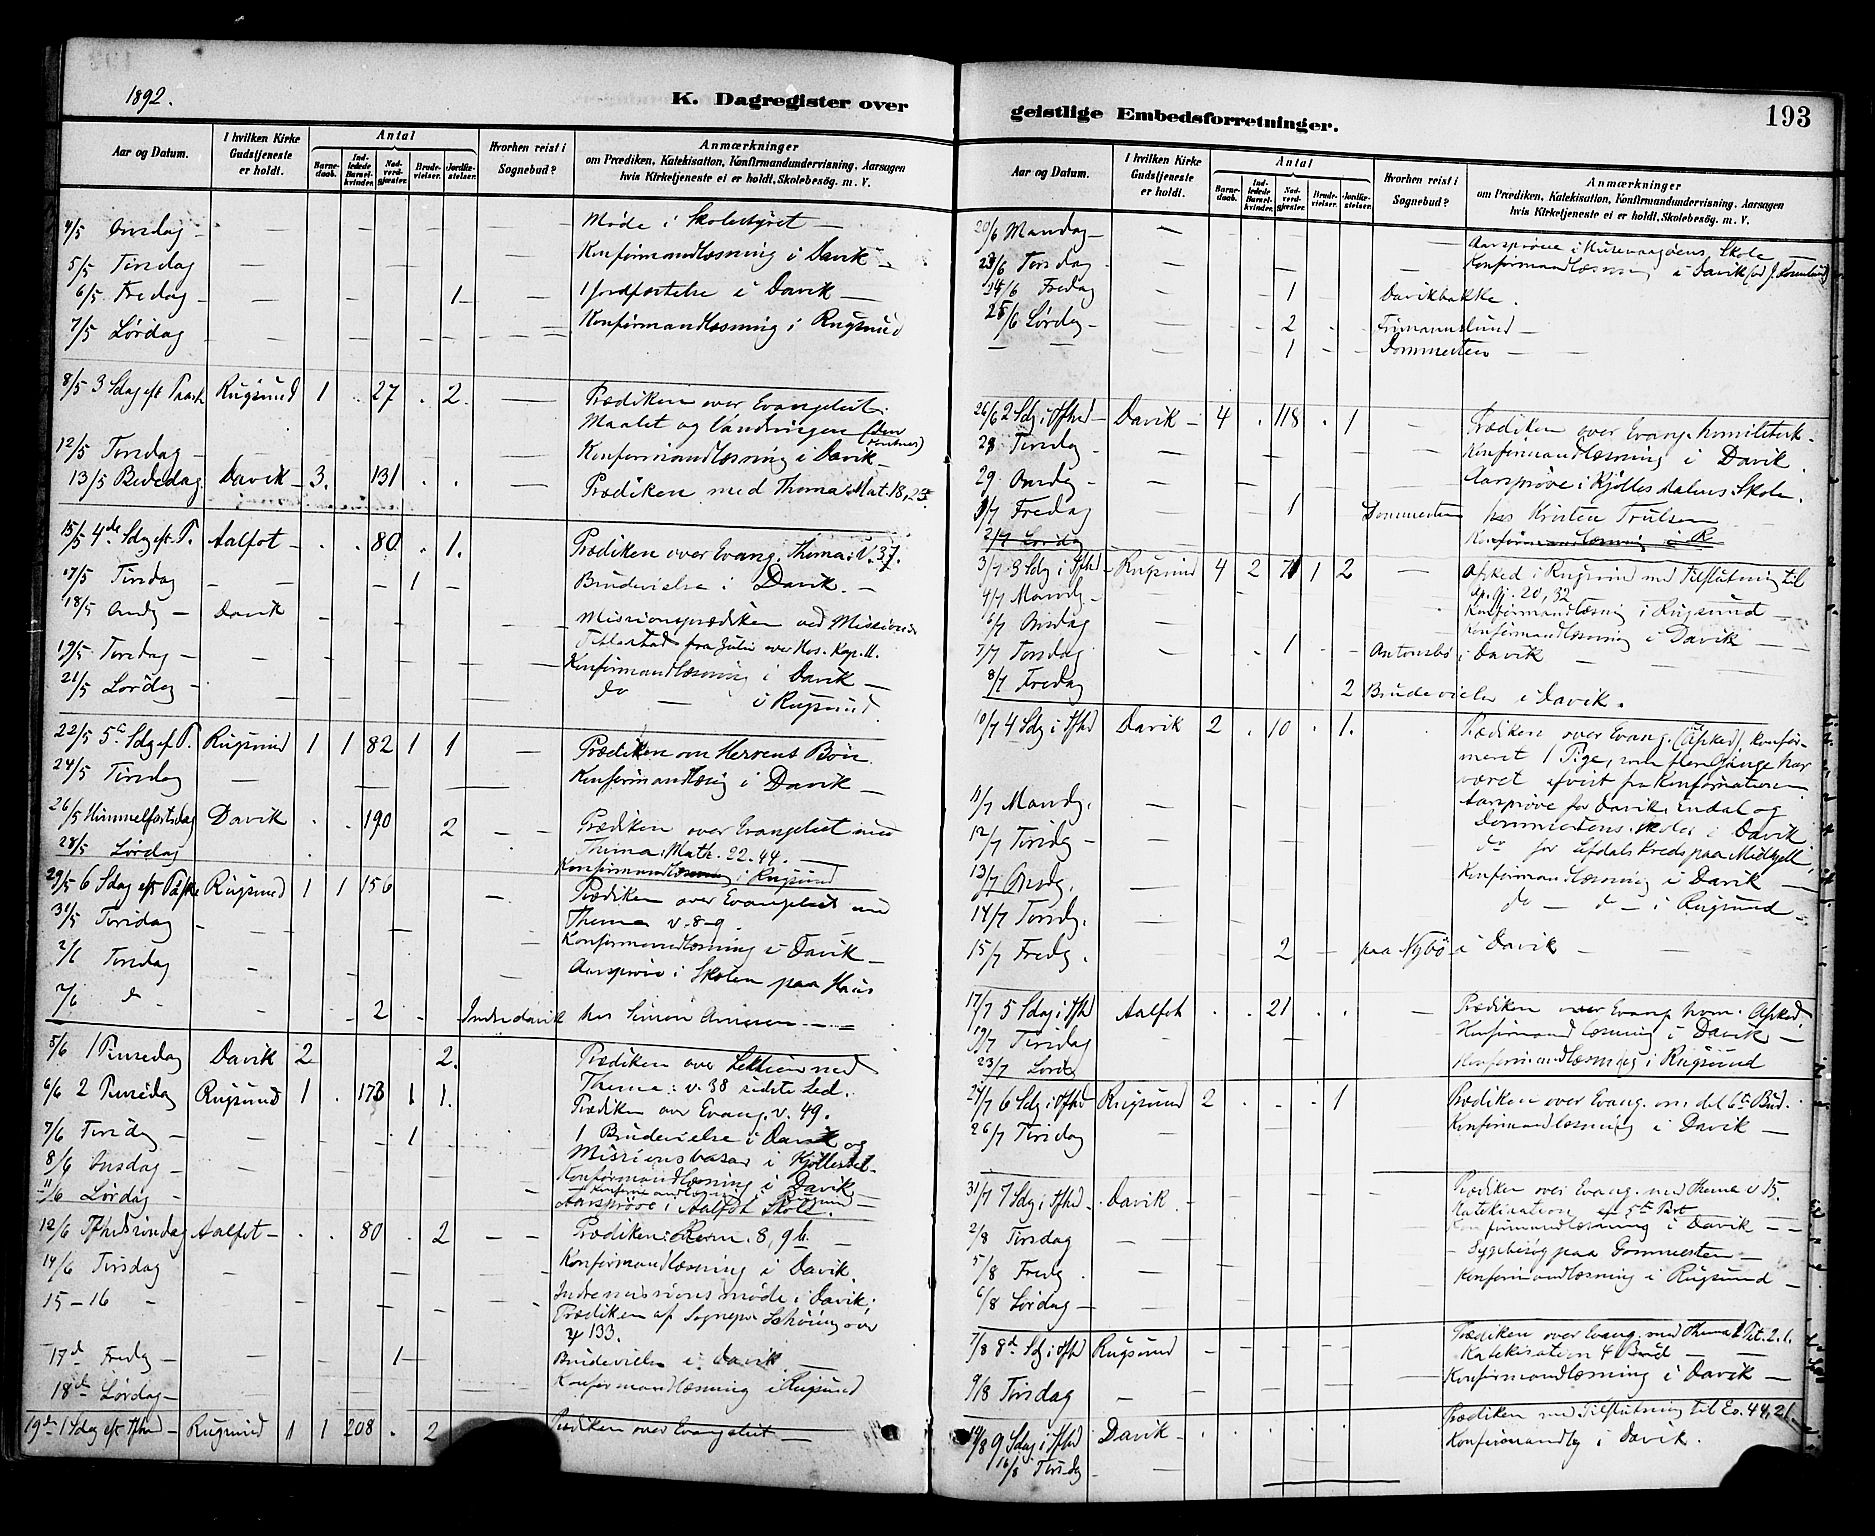 1892.
K. Dagregister over
Aar og Datum.
I hvilken Kirke Gudstjeneste er holdt.
Antal
Barnedaab.
Indledede Barselkvinder.
Nadverdgjæster.
Brudevielser.
Jordfæstelser.
Hvorhen reist i Sognebud?
Anmærkninger
om Prædiken, Katekisation, Konfirmandundervisning, Aarsagen
hvis Kirketjeneste ei er holdt, Skolebesøg. m. V.
4/5 Onsdag - Møde i Skolestyret
5/5 Tirsdag Konfirmandlæsning i Davik
6/5 Fredag 1 1 Jordfæstelse i Davik
7/5 Lørdag Konfirmandlæsning i Rugsund
8/5 3 Sdag eft Paaske Rugsund 1 . 27 . 2 Prædiken over Evangeliet.
Maalet og Vandringen
12/5 Torsdag Konfirmandlæsning i Davik
13/5 Bededag Davik 3. 131 . . Prædiken med Thema Mat. 18,23
15/5 4de Sdag eft P. Aalfot . . 80 . 1. Prædiken over Evang. Thema: V. 37.
17/5 Tirsdag 1 Brudevielse i Davik.
18/5 Onsdg Davik Missionsprædiken ved Missionær
19/5 Torsdag
Konfirmandlæsning i Davik
21/5 Lørdag do i Rugsund.
22/5 5te Sdag ef P. Rugsund 1 1 82 1 1 Prædiken om Herrens Bøn
24/5 Tirsdag Konfirmandlæsnig i Davik
26/5 Himmelfartsdag Davik . . 190 2 Prædiken over Evangeliet med
Thema: Math. 22.44.
28/5 Lørdag Konfirmandlæsning i Rugsund
29/5 6 Sdag eft Påske Rugsund 1 1 156 Prædiken over Evangeliet med
Thema v. 8-9.
31/5 Tirsdag Konfirmandlæsning i Davik
2/6 Torsdag Aarsprøve i Skolen paa Haus
2/6 d 2 Indredavik hos Simon
5/6 1 Pinsedag Davik 2 2. Prædiken over Lektien med
Thema: v. 38 sidste Led.
6/6 2 Pinsedag Rugsund 1 . 173 1 1. Prædiken over Evang. v. 49.
7/6 Tirsdg 1 1 Brudevielse i Davik og
8/6 Onsdag Missionsbasar i
Konfirmandlæsning i Davik
11/6 Lørdag
Aarsprøve i Aalfot Skole.
12/6 Tfhdssøndag Aalfot . . 80 . 2 Prædiken: Rom. 8, 9b.
14/6 Tirsdag Konfirmandlæsning i Davik.
15-16 Indremissionsmøde i Davik;
Prædiken af Sognepr. Schøning over
133.
17d Fredg 1 Brudevielse i Davik.
18d Lørdag Konfirmandlæsning i Rugsund
19d 1 Sdag eft Tfhd Rugsund 1 1 208 . 2 Prædiken over Evangeliet
geistlige Embedsforretninger.
193
Aar og Datum.
I hvilken Kirke Gudstjeneste er holdt.
Antal
Barnedaab.
Indledede Barselkvinder.
Nadverdgjæster.
Brudevielser.
Jordfæstelser.
Hvorhen reist i Sognebud?
Anmærkninger
om Prædiken, Katekisation, Konfirmandundervisning, Aarsagen
hvis Kirketjeneste ei er holdt, Skolebesøg. m. V.
20/6 Mandag Aarsprøve i Skole
23/6 Torsdag Konfirmandlæsning i Davik
24/6 Fredag 1 Davikbakke.
25/6 Lørdg 2 Frimannslund
1 Dommesten
26/6 2 Sdg i Tfhd Davik 4 . 118 . 1 Prædiken over Evang.
28 Tirsdag Konfirmandlæsning i Davik.
29 Onsdg Aarsprøve i Skole.
1/7 Fredag 1 Dommesten hos Kristen Trulsen
2/7 Lørdag Konfirmandlæsning i R
3/7 3 Sdg i Tfhd Rugsund 4 2 71 1 2 Afsked i Rugsund med Tilslutning til
Ap. Gj. 20,32
4/7 Mandg Konfirmandlæsnig i Rugsund
6/7 Onsdag Konfirmandlæsning i Davik
7/7 Torsdag 1 Antonsbø i Davik
8/7 Fredag 2 Brudevielser i Davik.
10/7 4 Sdg i Tfhd Davik 2 . 10 . 1. Prædiken over Evang. (Afsked), konfir-
meret 1 Pige, som flere Gange har
været afvist fra Konfirmationen
11/7 Mandg. Aarsprøve for Davik, Endal og
12/7 Tirsdg Dommestens Skoler i Davik
do for Lefdals Kreds paa
13/7 Onsdg. Konfirmandlæsning i Davik
14/7 Torsdg. do d i Rugsund
15/7 Fredg. 2 paa Nybø i Davik
17/7 5 Sdag i Tfhd Aalfot . . 21 Prædiken over Evang. hom. Afsked.
19/7 Tirsdag Konfirmandlæsning i Davik
23/7 Lørd Konfirmandlæsning i Rugsund
24/7 6 Sdg i Tfhd Rugsund 2 . . . 1 Prædiken over Evang. om det 6te Bud.
26/7 Tirsdag Konfirmandlæsning i Davik
31/7 7 Sdg i Tfhd Davik. Prædiken over Evang. med Thema v 15.
Katekisation
2/8 Tirsdag Konfirmandlæsning i Davik
5/8 Fredg. Sygebesøg paa Dommesten
6/8 Lørdag Konfirmandlæsning i Rugsund
7/8 8d Sdg i Tfhd Rugsund Prædiken over Evang. med Thema Tit. 2. 1.
Katekisation 4 Bud
9/8 Tirsdag Konfirmandlæsning i Davik
14/8 9 Sdag i Tfhd Davik Prædiken med Tilslutning til Es. 44,21
16/8 Tirsdg Konfirmandlg i Davik.